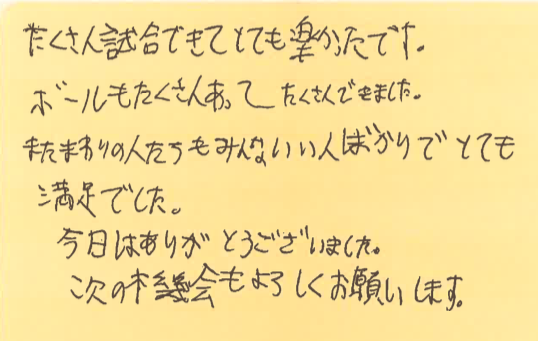 たくさん試合できてとても楽かったです。
ボールもたくさんあってたくさんできました。
またまわりの人たちもみんないい人ばかりでとても
満足でした。
今日はありがとうございました。
次の機会もよろしくお願いします。